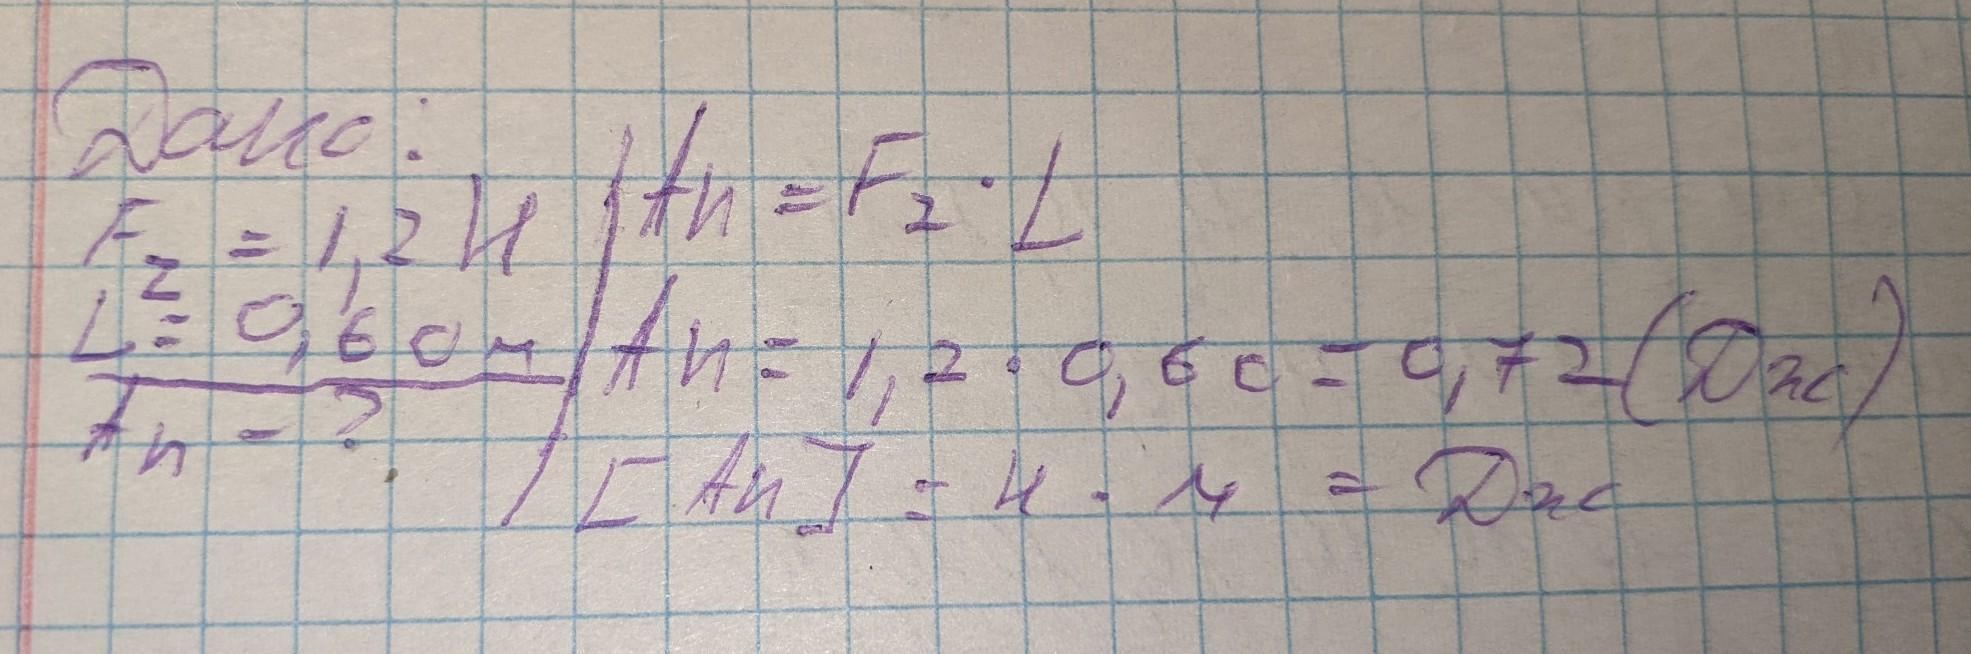 Дано:
F₂ = 1,2 Н
L = 0,60 м
Aп - ?
Aп = F₂ · L
Aп = 1,2 · 0,60 = 0,72 (Дж)
[Aп] = Н · м = Дж